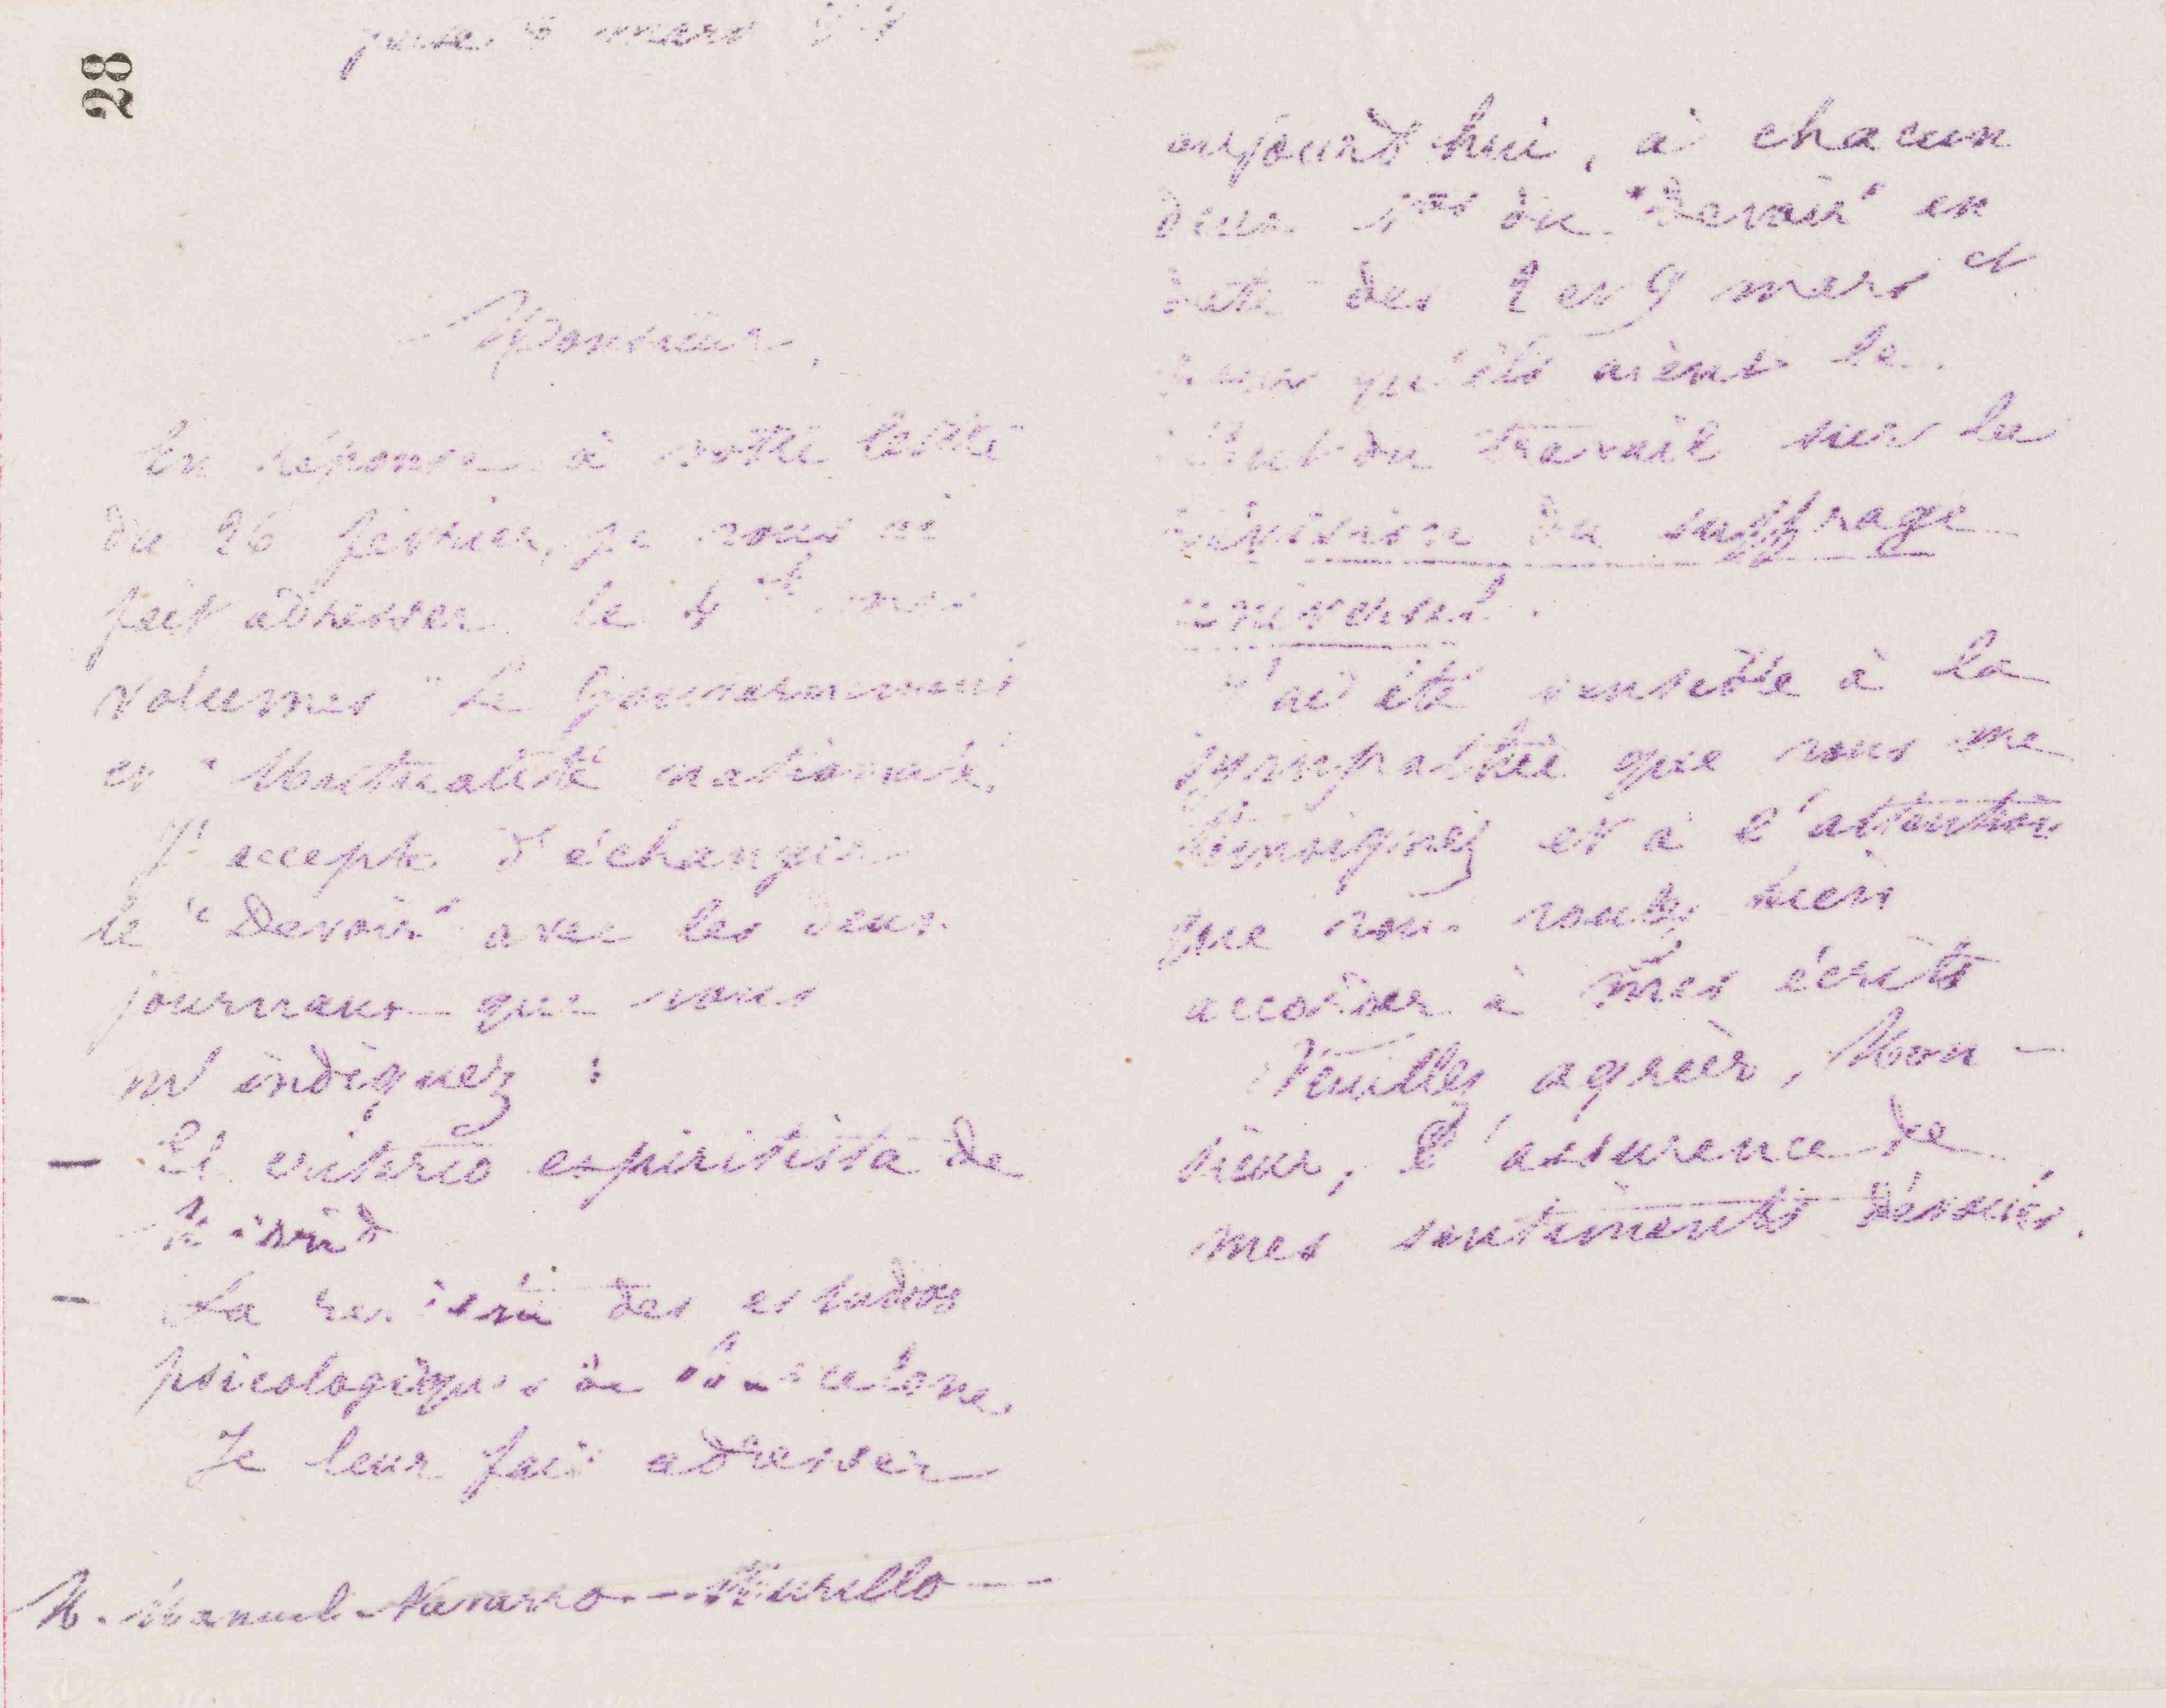 28
Guise, 8 mars
Monsieur,
En réponse à votre lettre
du 26 février, je vous ai
fait adresser le 4 mes
volumes "Le Gouvernement"
et "Mutualité nationale."
J'accepte d'échanger
le "Devoir" avec les deux
journaux que vous
m'indiquez :
— El criterio espiritista de
Madrid
— La revista des estudios
psicologiques de Barcelone.
Je leur fais adresser
M. Manuel Navarro-Murillo
aujourd'hui, à chacun
deux nos du "Devoir" en
date des 2 et 9 mars ct
pour qu'ils aient le
début du travail sur la
révision du suffrage
universel.
J'ai été sensible à la
sympathie que vous me
témoignez et à l'attention
que vous voulez bien
accorder à mes écrits
Veuillez agréer, Mon-
sieur, l'assurance de
mes sentiments dévoués.